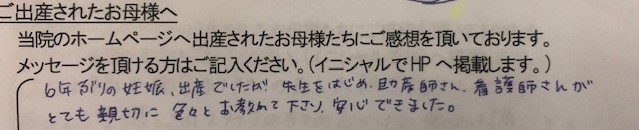 ご出産されたお母様へ
当院のホームページへ出産されたお母様たちにご感想を頂いております。
メッセージを頂ける方はご記入ください。（イニシャルでHPへ掲載します。）
6年ぶりの妊娠、出産でしたが 先生をはじめ、助産師さん、看護師さんが
とても親切に 色々とお教えて下さり、安心できました。